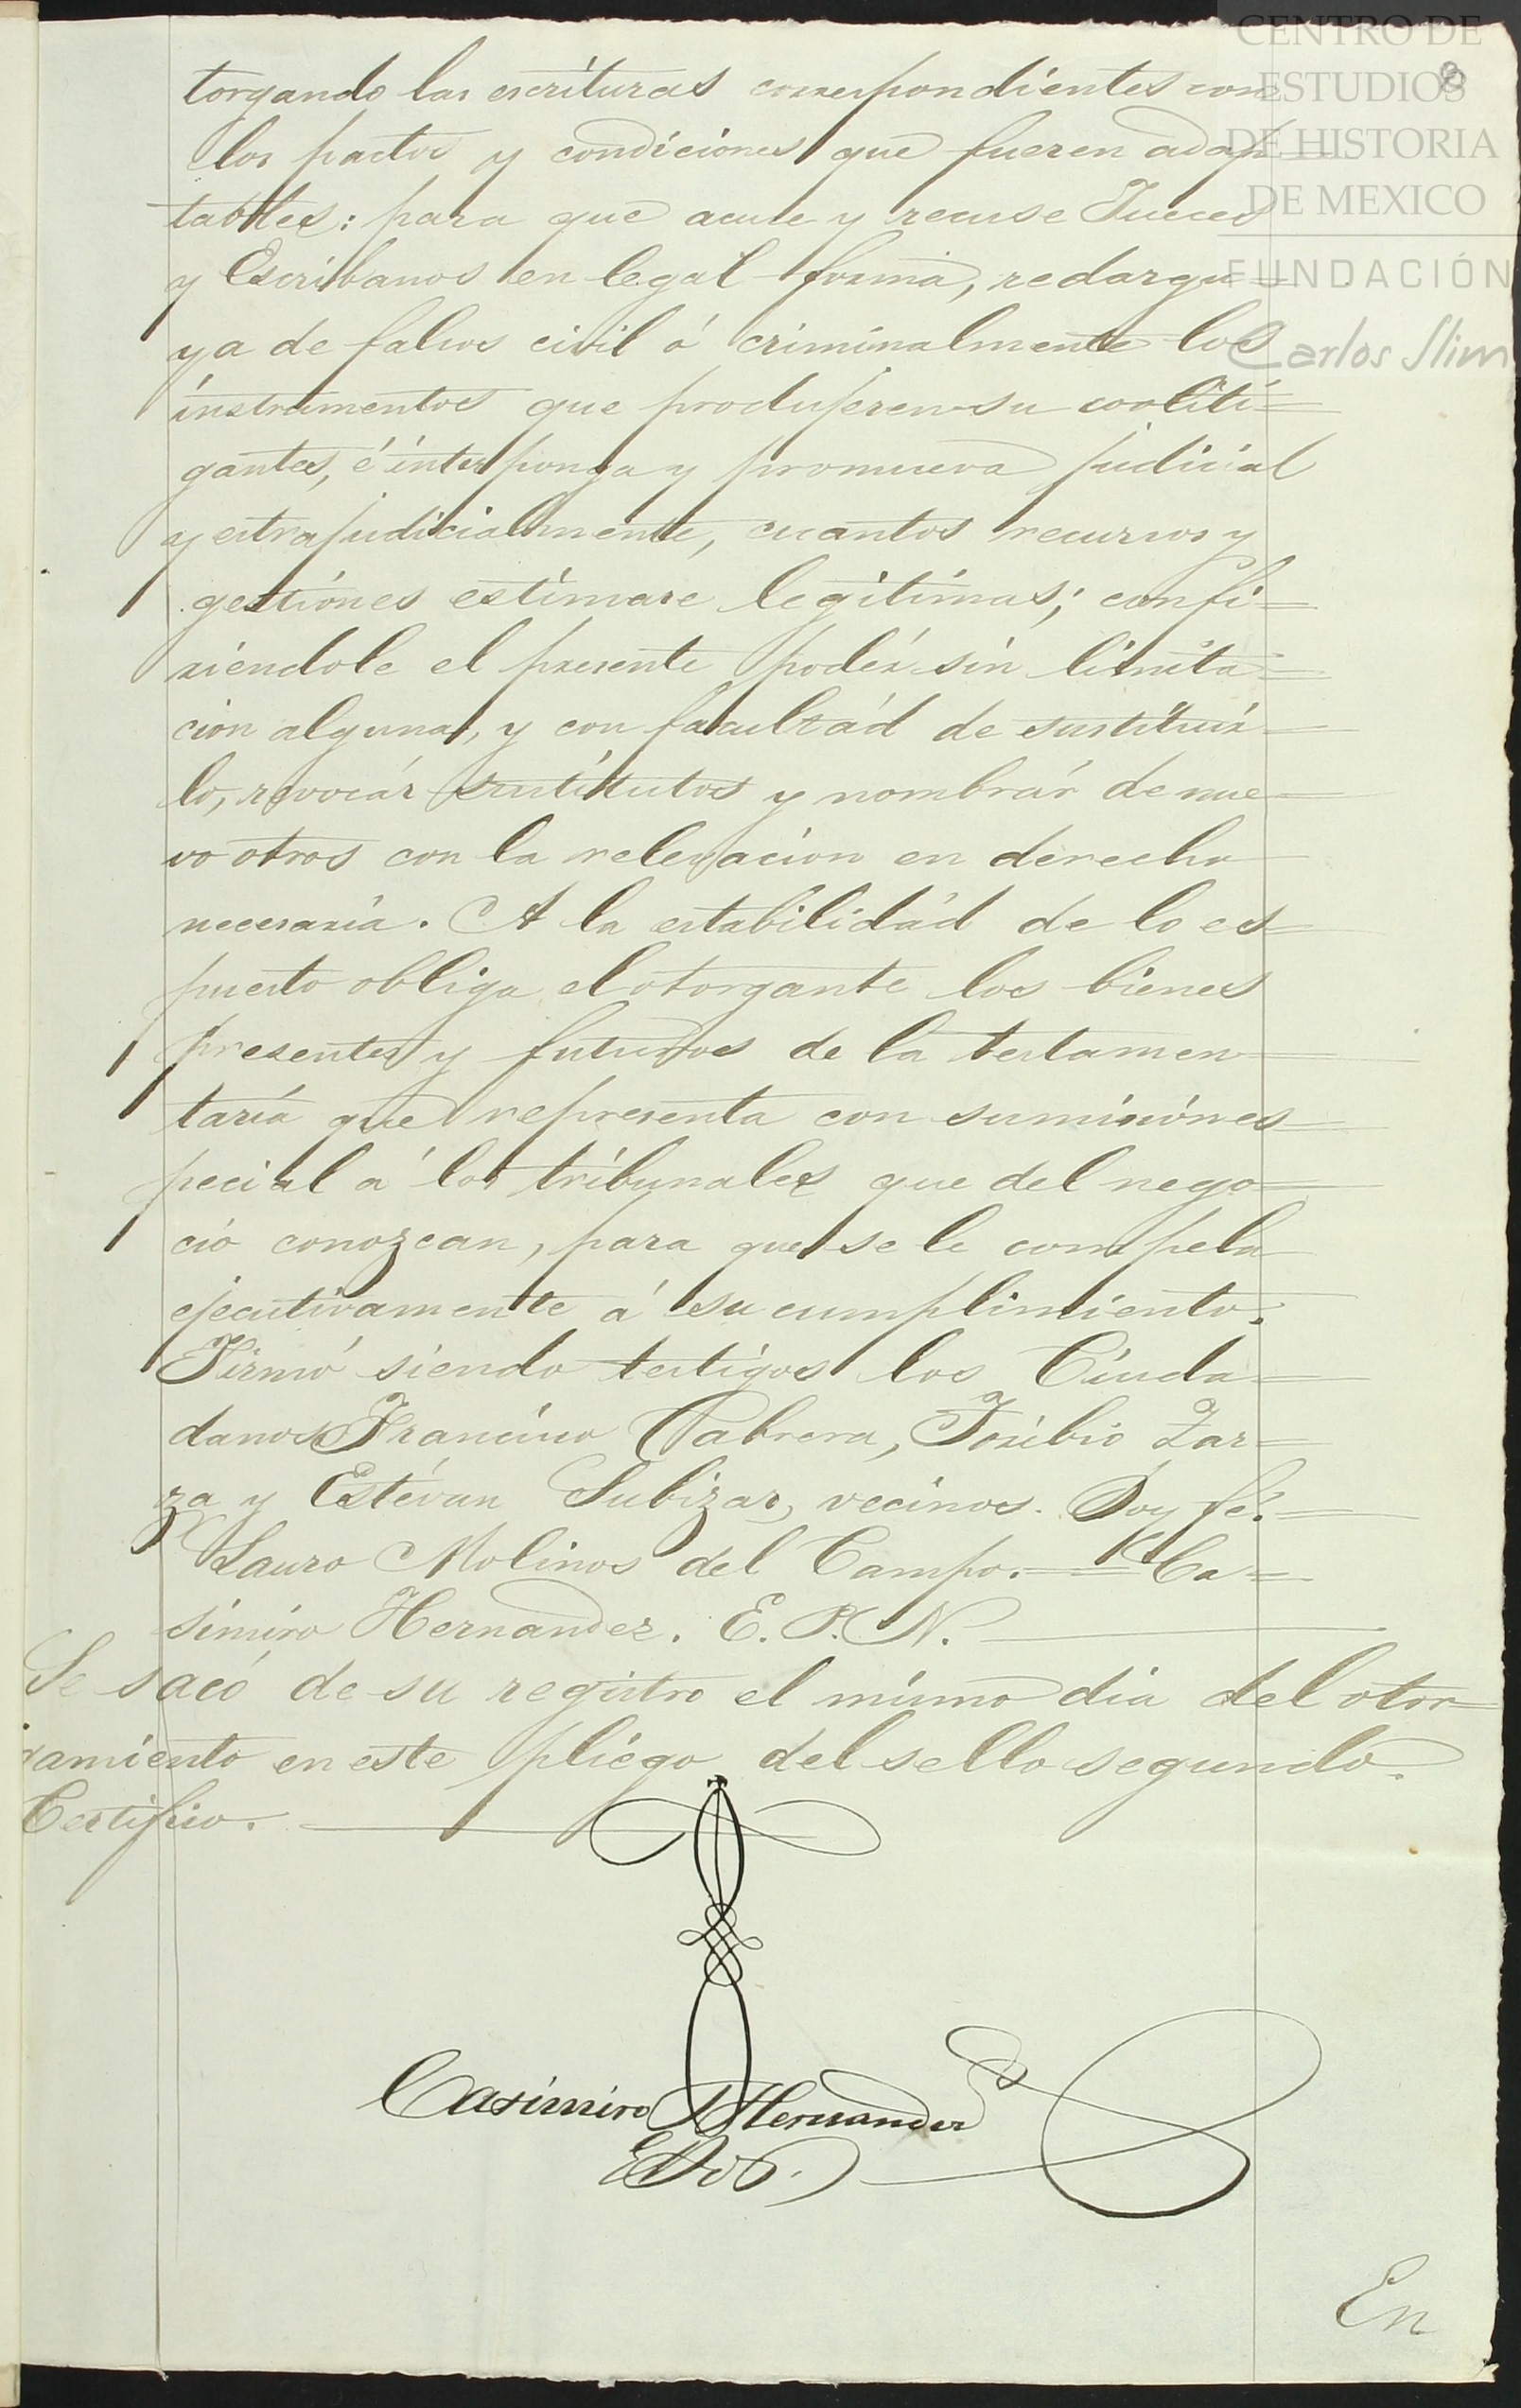 CENTRO DE
ESTUDIOS
DE HISTORIA
DE MEXICO
FUNDACIÓN
Carlos Slim
8
torgando las escrituras correspondientes con
los pactos y condiciones que fueren adap-
tables: para que acuse y recuse Jueces
y Escribanos en legal forma, redargu-
ya de falsos civil ó criminalmente los
instrumentos que produjeren su coliti=
gantes, é interponga y promueva judicial
y extrajudicialmente, cuantos recursos y
gestiónes estimare legitimas; confi=
riendole el presente podér sin limita=
cion alguna, y con facultád de sustituir-
lo, revocár sustitutos y nombrár de nue=
vo otros con la relevacion en derecho
necesaria. A la estabilidád de lo es-
puesto obliga el otorgante los bienes
presentes y futuros de la testamen-
taria que representa con sumisión es=
pecial á los tribunales que del nego=
cio conozcan, para que se le compela
ejecutivamente á su cumplimiento.
Firmó siendo testigos los Ciuda=
danos Francisco Cabrera, Toribio Zar=
za y Estévan Subizar, vecinos. Doy fé.=
Lauro Molinos del Campo.== Ca=
simiro Hernandez. E. P. N.
Se sacó de su registro el mismo dia del otor=
gamiento en este pliego del sello segundo.
Certifico.
Casimiro Hernandez
En